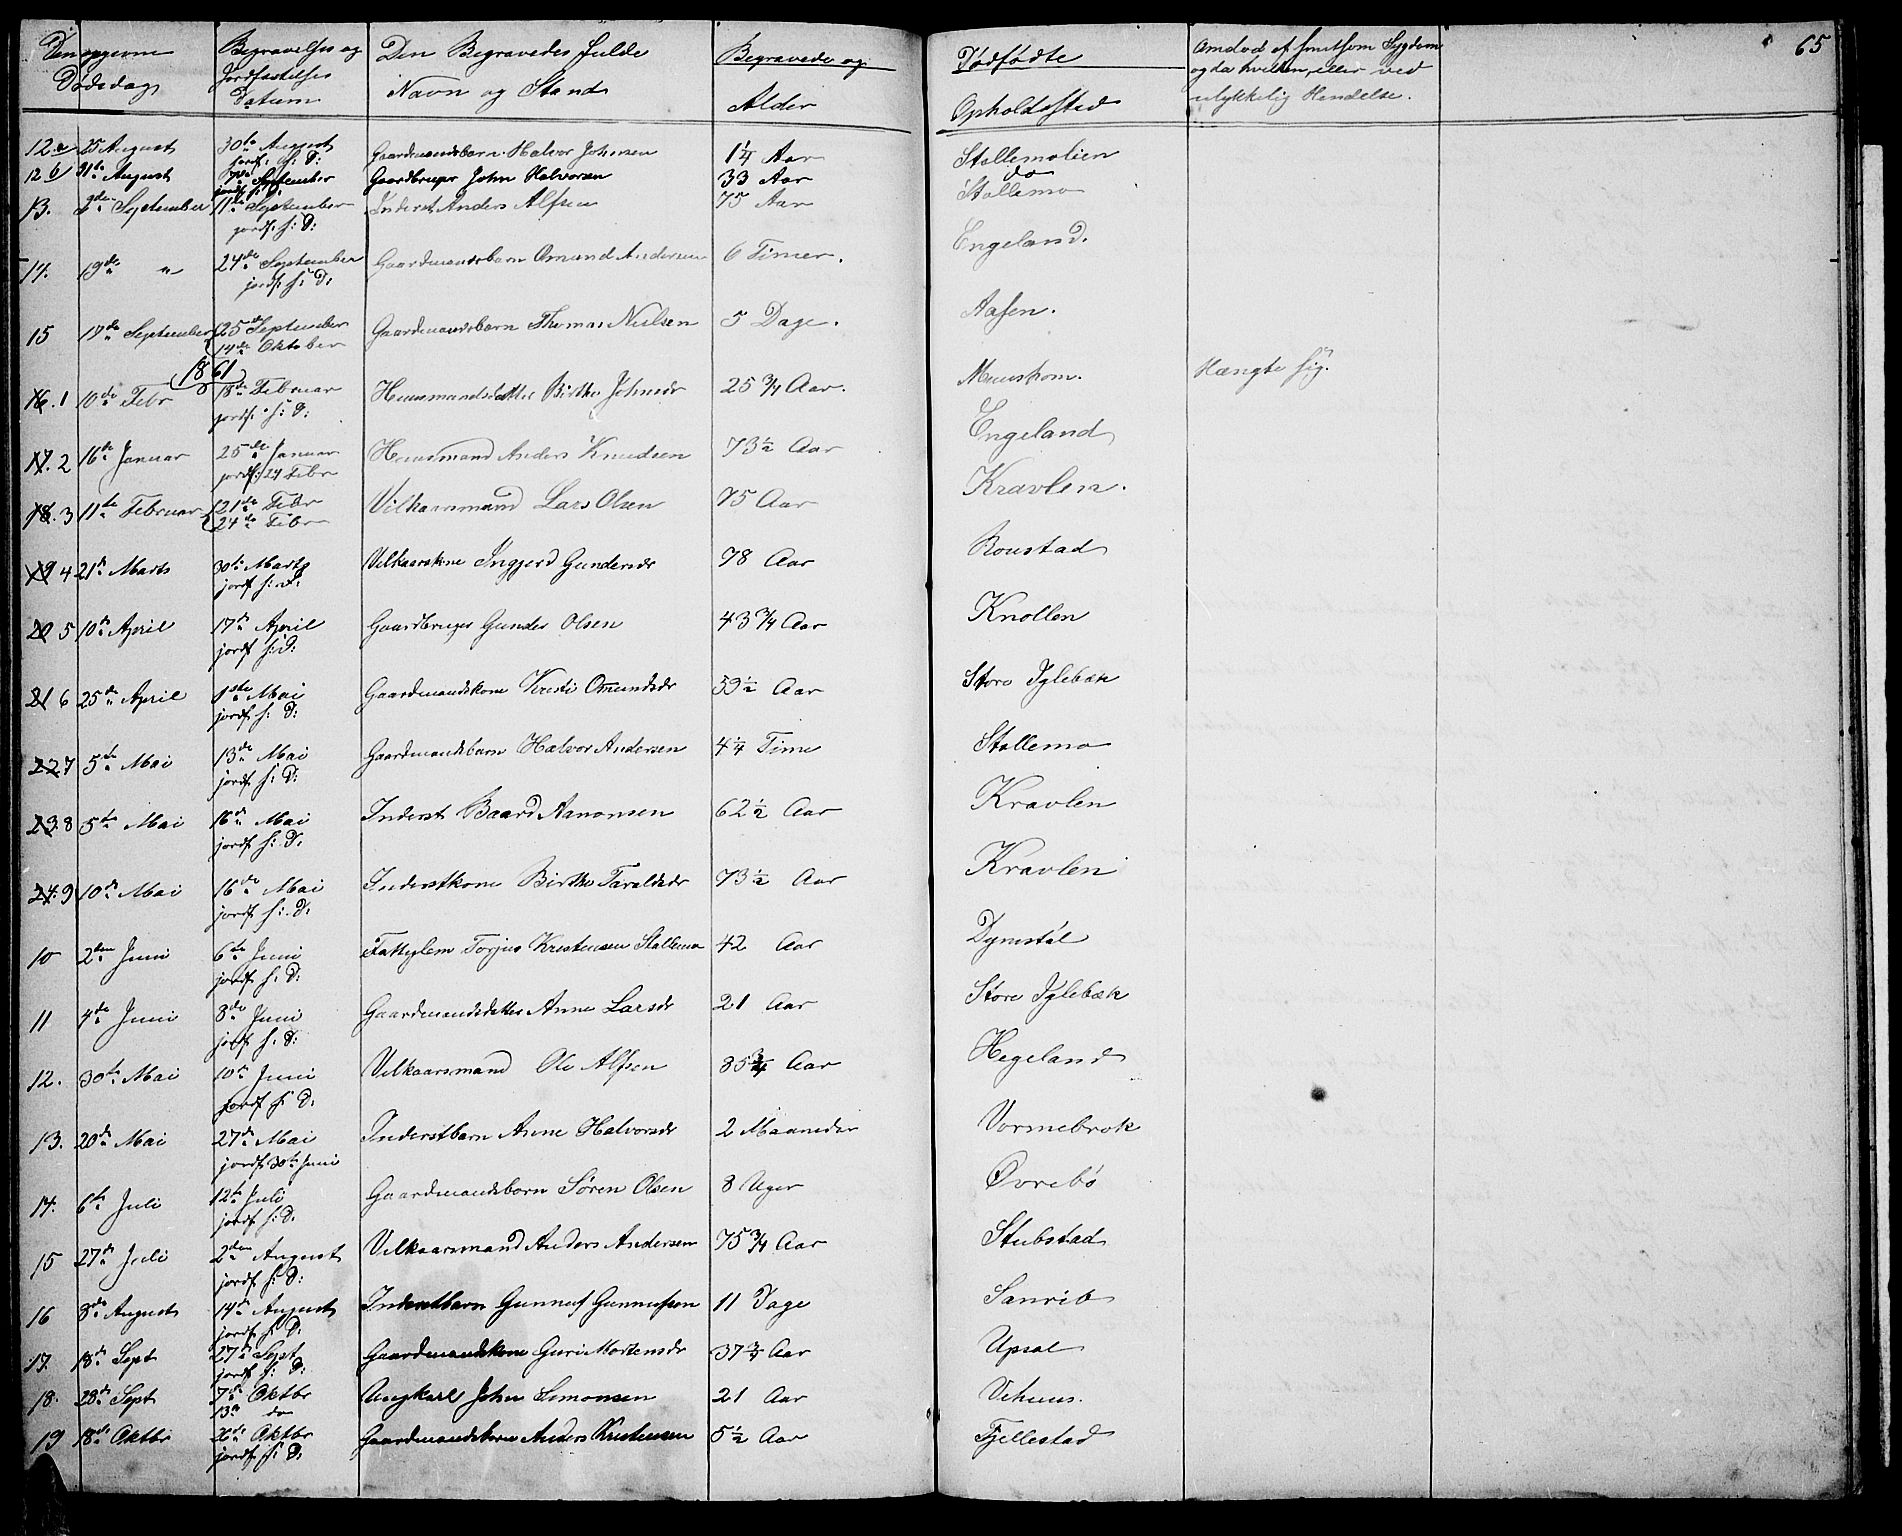 65
Den opgivne Dødsdag
Begravelses og Jordfæstelses Datum
Den Begravedes fulde Navn og Stand
Begravede og
Alder
Dødfødte
Opholdssted
Om død af smitsom Sygdom og da hvilken, eller ved ulykkelig Hendelse.
12 a 25 August 30te August Gaardmandsbarn Halvor Johnsen 1¼ Aar Stallemolien
jordf. s: D:
12 b 31te August 7de September Gaardbruger John Halvorsen 33 Aar do
jordf. s: D:
13. 3de September 11te September Inderst Anders Alfsen 75 Aar Stallemo
jordf. s: D:
14. 19de " 24de September Gaardmandsbarn Omund Andersen 6 Timer. Engeland.
jordf. s: D:
15 17de September 25de September Gaardmandsbarn Thomas Nielsen 5 Dage. Aasen.
14de Oktober
1861
16. 1 10de Febr 18de Februar Huusmandsdatter Birthe Johnsdr 25 ¾ Aar. Hængte sig.
jordf. s: D:
17. 2 16de Januar 25de Januar Huusmand Anders Knudsen 73½ Aar Engeland
jordf: 24 Febr
18. 3 11te Februar 21de Febr Vilkaarsmand Lars Olsen 75 Aar Kravlen.
24de Febr
19 4 21de Marts 30te Marts Vilkaarskone Ingjerd Gundersdr 78 Aar Roustad
jordf s: D:
20 5 10de April 17de April Gaardbruger Gunder Olsen 43 ¾ Aar Knollen
jordf s: D:
21 6 25de April 1ste Mai Gaardmandskone Kirsti Omundsdr 59½ Aar Store Iglebæk
jordf s: D:
22 7 5te Mai 13de Mai Gaardmandsbarn Halvor Andersen 4¼ Time Stallemo
jordf. s: D:
23. 8 5te Mai 16de Mai Inderst Baard Aanonsen 62½ Aar Kravlen
jordf. s: D:
24. 9 10de Mai 16de Mai Inderstkone Birthe Taraldsdr 73½ Aar Kravlen
jordf. s: D:
10 2den Juni 6te Juni Fattiglem Torjus Kristensen Stallemo 42 Aar Dynestøl
jordf s: D:
11 4de Juni 8de Juni Gaardmandsdatter Anne Larsdr 21 Aar Store Iglebæk
jordf s: D:
12. 30te Mai 10de Juni Vilkaarsmand Ole Alfsen 85¾ Aar Hegeland
jordf s: D:
13. 20de Mai 27de Mai Inderstbarn Anne Halvorsdr 2 Maaneder Vormebrok
jordf. 30te Juni
14. 6te Juli 12te Juli Gaardmandsbarn Søren Olsen 8 Uger Øvrebø
jordf. s: D:
15 27de Juli 2den August Vilkaarsmand Anders Andersen 75¾ Aar Stubstad
jordf. s: D:
16 8de August 14de August Inderstbarn Gunnuf Gunnufsen 11 Dage Sanrib
jordf. s: D:
17. 18de Sept 27de Sept Gaardmandskone Guri Mortensdr 37¾ Aar Upsal
jordf. s: D:
18. 28de Sept 7de Oktbr Ungkarl John Simonsen 21 Aar Vehuus.
13de do
19 18de Oktbr 26de Oktbr Gaardmandsbarn Anders Kristensen 5½ Aar Fjellestad
jordf s: D: